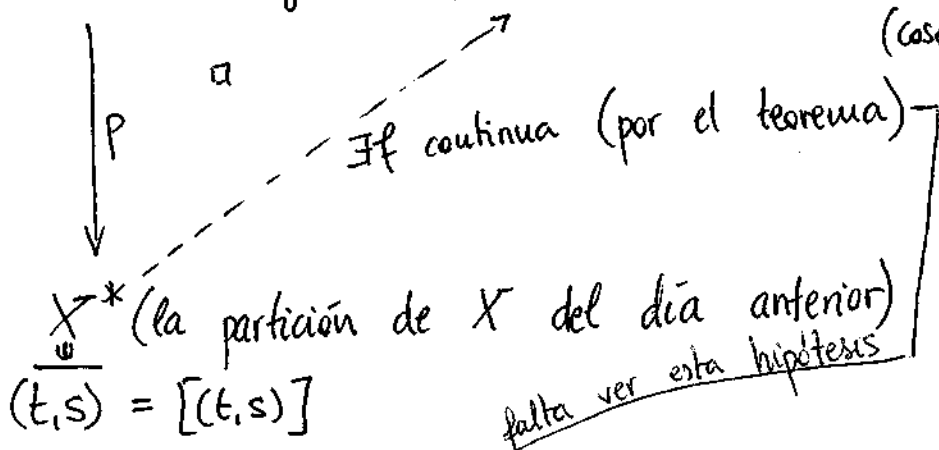 (cos
p
∃f continua (por el teorema)
X* (la partición de X del día anterior)
falta ver esta hipótesis
(t,s) = [(t,s)]